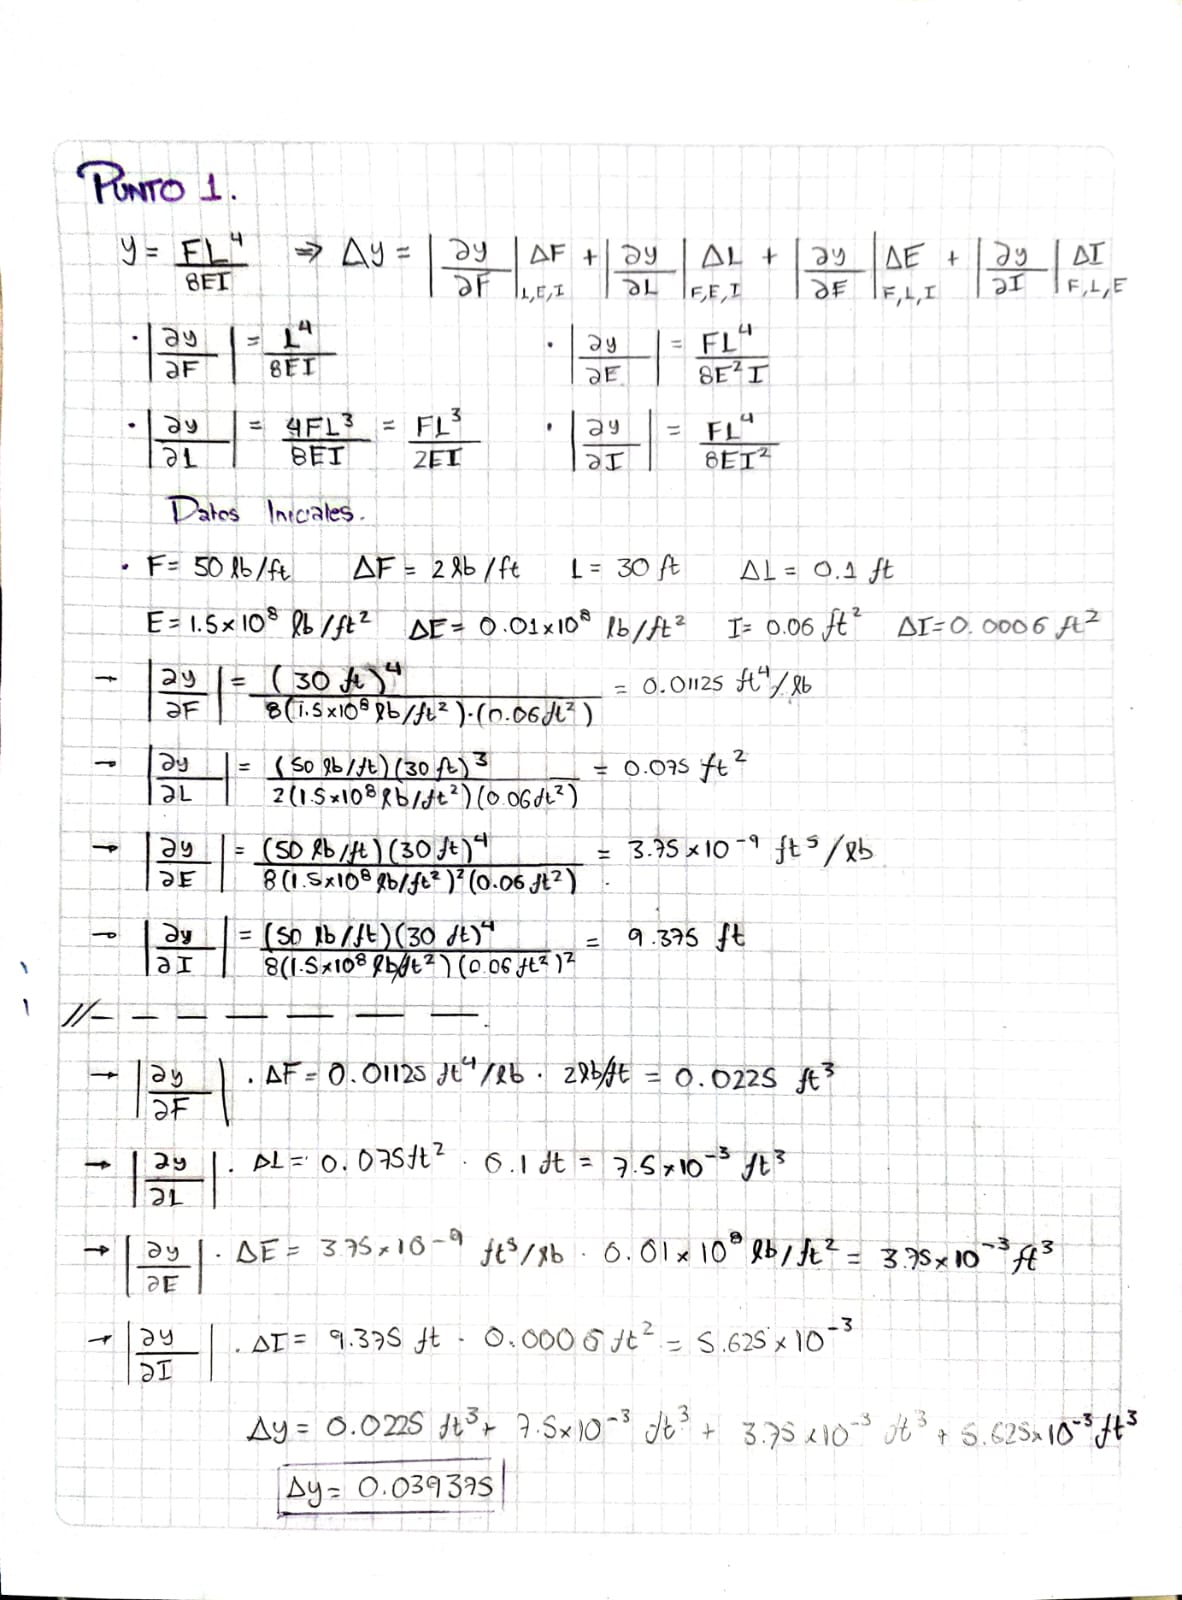 PUNTO 1.
y = FL⁴/8EI ⇒ Δy = |∂y/∂F|_L,E,I ΔF + |∂y/∂L|_F,E,I ΔL + |∂y/∂E|_F,L,I ΔE + |∂y/∂I|_F,L,E ΔI
· |∂y/∂F| = L⁴/8EI · |∂y/∂E| = FL⁴/8E²I
· |∂y/∂L| = 4FL³/8EI = FL³/2EI · |∂y/∂I| = FL⁴/8EI²
Datos Iniciales.
· F = 50 lb/ft ΔF = 2 lb/ft L = 30 ft ΔL = 0.1 ft
E = 1.5×10⁸ lb/ft² ΔE = 0.01×10⁸ lb/ft² I = 0.06 ft² ΔI = 0.0006 ft²
→ |∂y/∂F| = (30 ft)⁴/8(1.5×10⁸ lb/ft²)·(0.06 ft²) = 0.01125 ft⁴/lb
→ |∂y/∂L| = (50 lb/ft)(30 ft)³/2(1.5×10⁸ lb/ft²)(0.06 ft²) = 0.075 ft²
→ |∂y/∂E| = (50 lb/ft)(30 ft)⁴/8(1.5×10⁸ lb/ft²)²(0.06 ft²) = 3.75×10⁻⁹ ft⁵/lb
→ |∂y/∂I| = (50 lb/ft)(30 ft)⁴/8(1.5×10⁸ lb/ft²)(0.06 ft²)² = 9.375 ft
//– – – – – – –.
→ |∂y/∂F| · ΔF = 0.01125 ft⁴/lb · 2 lb/ft = 0.0225 ft³
→ |∂y/∂L| · ΔL = 0.075 ft² · 0.1 ft = 7.5×10⁻³ ft³
→ |∂y/∂E| · ΔE = 3.75×10⁻⁹ ft⁵/lb · 0.01×10⁸ lb/ft² = 3.75×10⁻³ ft³
→ |∂y/∂I| · ΔI = 9.375 ft · 0.0006 ft² = 5.625×10⁻³
Δy = 0.0225 ft³ + 7.5×10⁻³ ft³ + 3.75×10⁻³ ft³ + 5.625×10⁻³ ft³
Δy = 0.039375